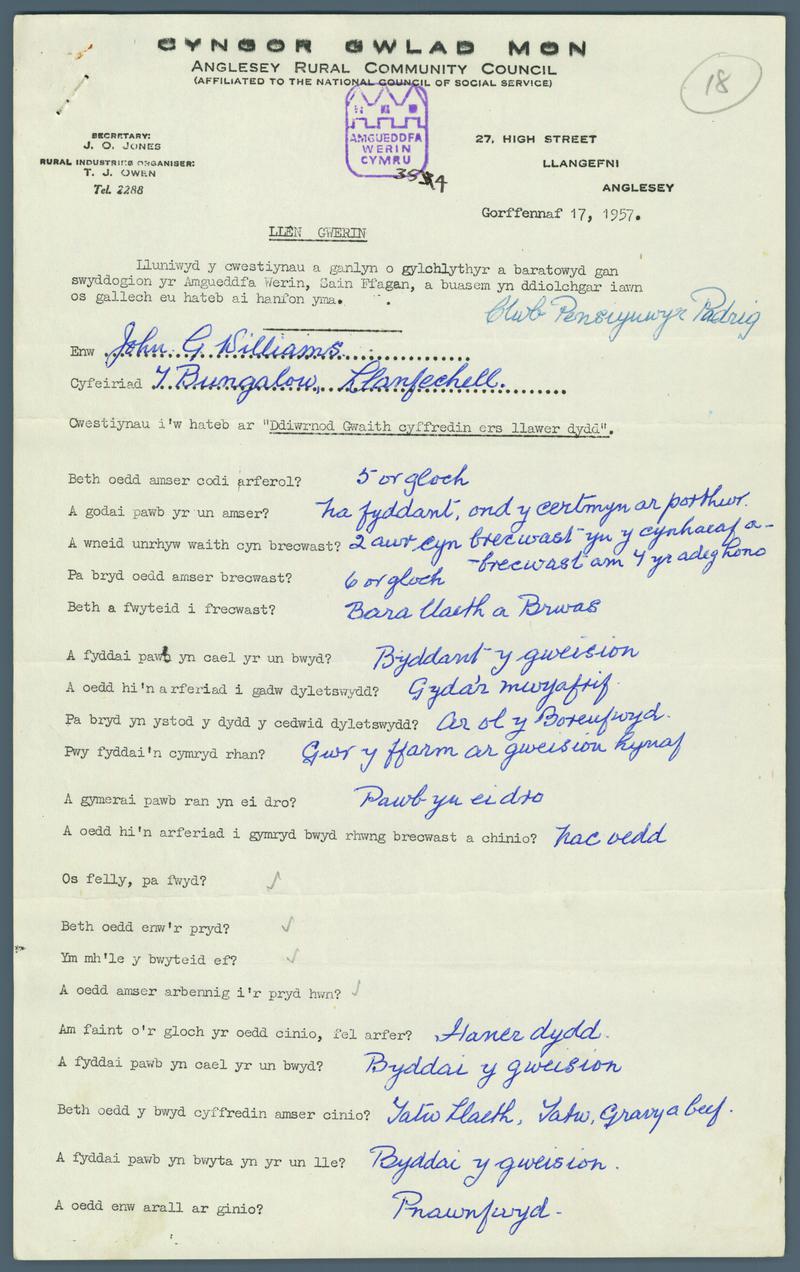 CYNGOR GWLAD MON
ANGLESEY RURAL COMMUNITY COUNCIL
(AFFILIATED TO THE NATIONAL COUNCIL OF SOCIAL SERVICE)
18
SECRETARY:
J. O. JONES
RURAL INDUSTRIES ORGANISER:
T. J. OWEN
Tel. 2288
AMGUEDDFA
WERIN
CYMRU
27, HIGH STREET
LLANGEFNI
ANGLESEY
Gorffennaf 17, 1957.
LLÊN GWERIN
Lluniwyd y cwestiynau a ganlyn o gylchlythyr a baratowyd gan
swyddogion yr Amgueddfa Werin, Sain Ffagan, a buasem yn ddiolchgar iawn
os gallech eu hateb ai hanfon yma.
Clwb Pensiynwyr Padrig
Enw John G Williams
Cyfeiriad Y Bungalow, Llanfechell.
Cwestiynau i'w hateb ar "Ddiwrnod Gwaith cyffredin ers llawer dydd".
Beth oedd amser codi arferol? 5 or gloch
A godai pawb yr un amser? Na fyddant, ond y certmyn ar porthwr.
A wneid unrhyw waith cyn brecwast? 2 awr cyn brecwast yn y cynhaeaf a-
-brecwast am 4 yr adeg hono
Pa bryd oedd amser brecwast? 6 or gloch
Beth a fwyteid i frecwast? Bara llaeth a Brwas
A fyddai pawb yn cael yr un bwyd? Byddant y gweision
A oedd hi'n arferiad i gadw dyletswydd? Gyda'r mwyafrif.
Pa bryd yn ystod y dydd y cedwid dyletswydd? Ar ol y Boreufwyd.
Pwy fyddai'n cymryd rhan? Gwr y ffarm ar gweision hynaf
A gymerai pawb ran yn ei dro? Pawb yn ei dro
A oedd hi'n arferiad i gymryd bwyd rhwng brecwast a chinio? Nac oedd
Os felly, pa fwyd?
Beth oedd enw'r pryd?
Ym mh'le y bwyteid ef?
A oedd amser arbennig i'r pryd hwn?
Am faint o'r gloch yr oedd cinio, fel arfer? Haner dydd.
A fyddai pawb yn cael yr un bwyd? Byddai y gweision
Beth oedd y bwyd cyffredin amser cinio? Tatw Llaeth, Tatw, Gravy a beef.
A fyddai pawb yn bwyta yn yr un lle? Byddai y gweision.
A oedd enw arall ar ginio? Pnawnfwyd-